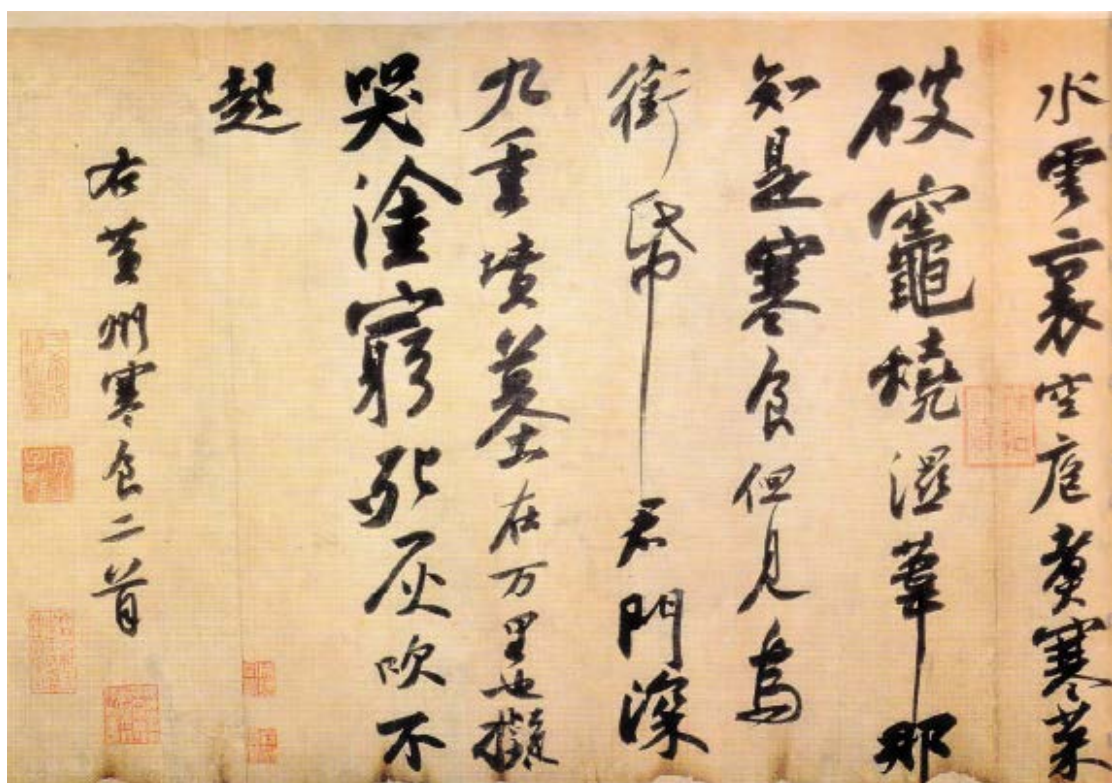 水雲裏空庖煑寒菜
破竈燒濕葦那
知是寒食但見烏
銜帋君門深
九重墳墓在万里也擬
哭塗窮死灰吹不
起
右黃州寒食二首